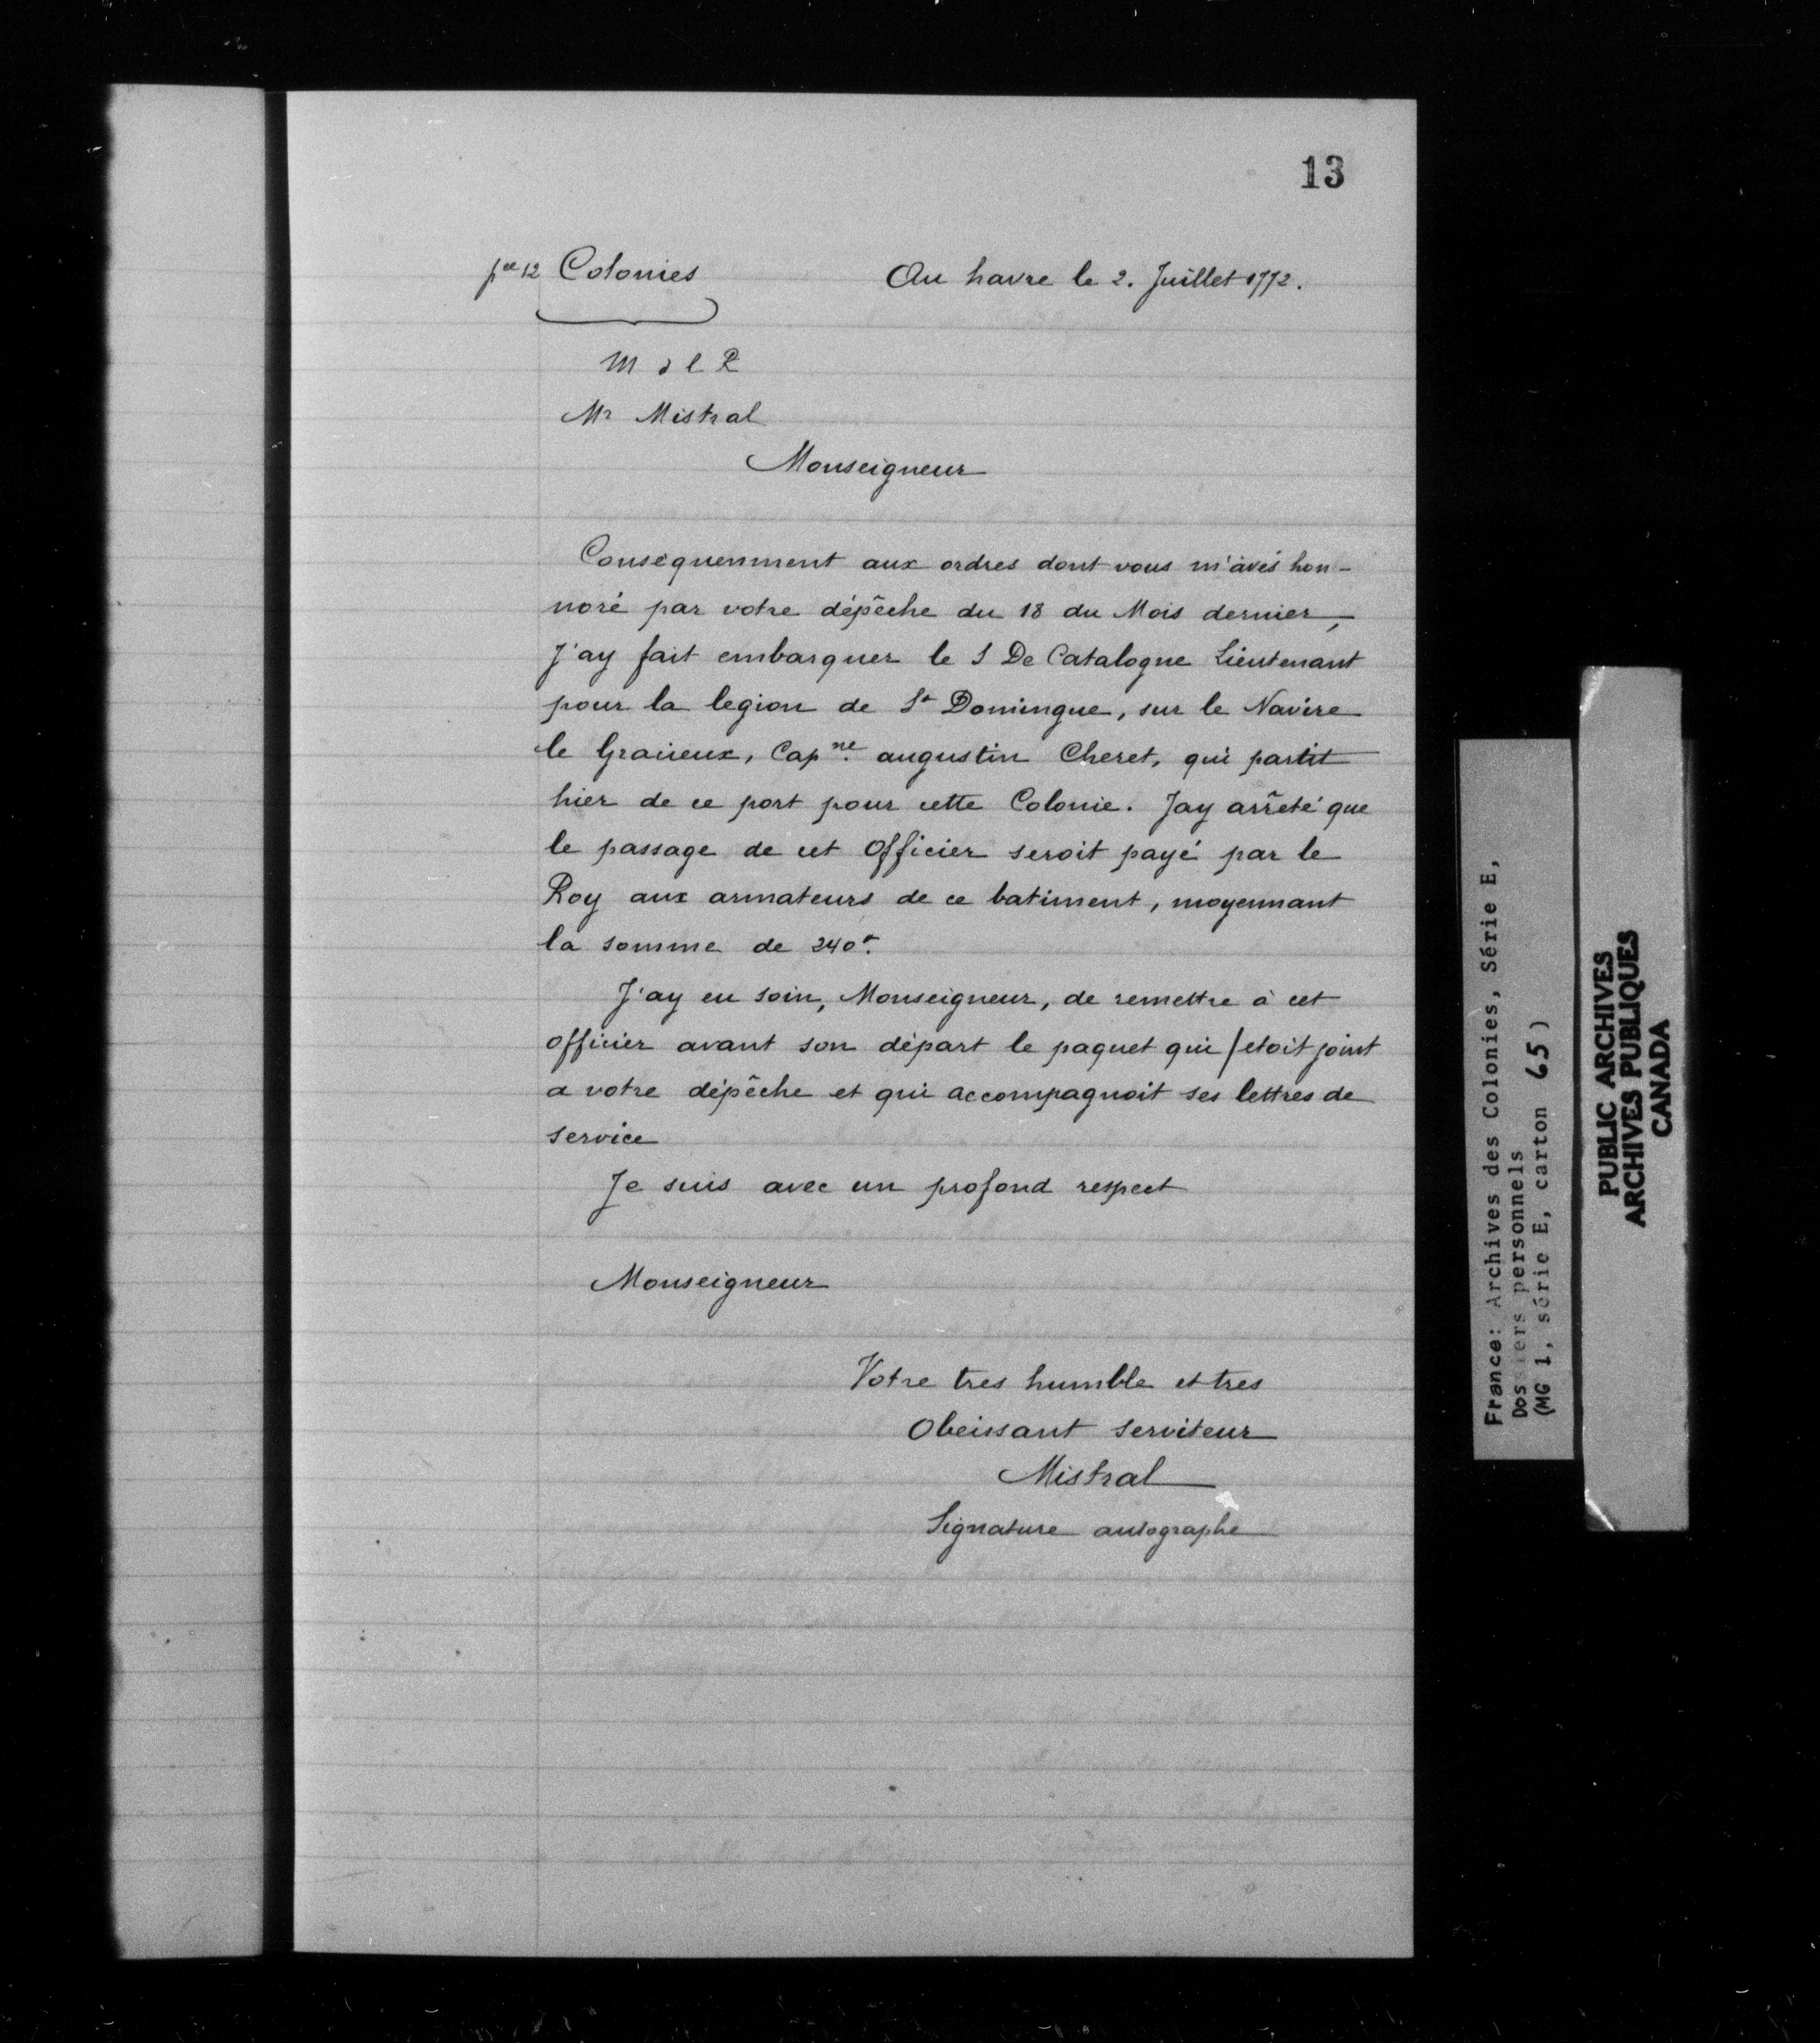 13
pce 12 Colonies
Au havre le 2. Juillet 1772.
M d l R
Mr Mistral
Monseigneur
Consequemment aux ordres dont vous m'avés hon-
noré par votre dépêche du 18 du Mois dernier,
J'ay fait embarquer le S De Catalogne Lieutenant
pour la legion de St Domingue, sur le Navire
le Gracieux, Capne. augustin Cheret, qui partit
hier de ce port pour cette Colonie. Jay arrêté que
le passage de cet Officier seroit payé par le
Roy aux armateurs de ce batiment, moyennant
la somme de 240
J'ay eu soin, Monseigneur, de remettre à cet
officier avant son départ le paquet qui / etoit joint
a votre dépêche et qui accompagnoit ses lettres de
service
Je suis avec un profond respect
Monseigneur
Votre tres humble et tres
Obeissant serviteur
Mistral
Signature autographe
France: Archives des Colonies, Série E,
Dossiers personnels
(MG 1, série E, carton 65)
PUBLIC ARCHIVES
ARCHIVES PUBLIQUES
CANADA